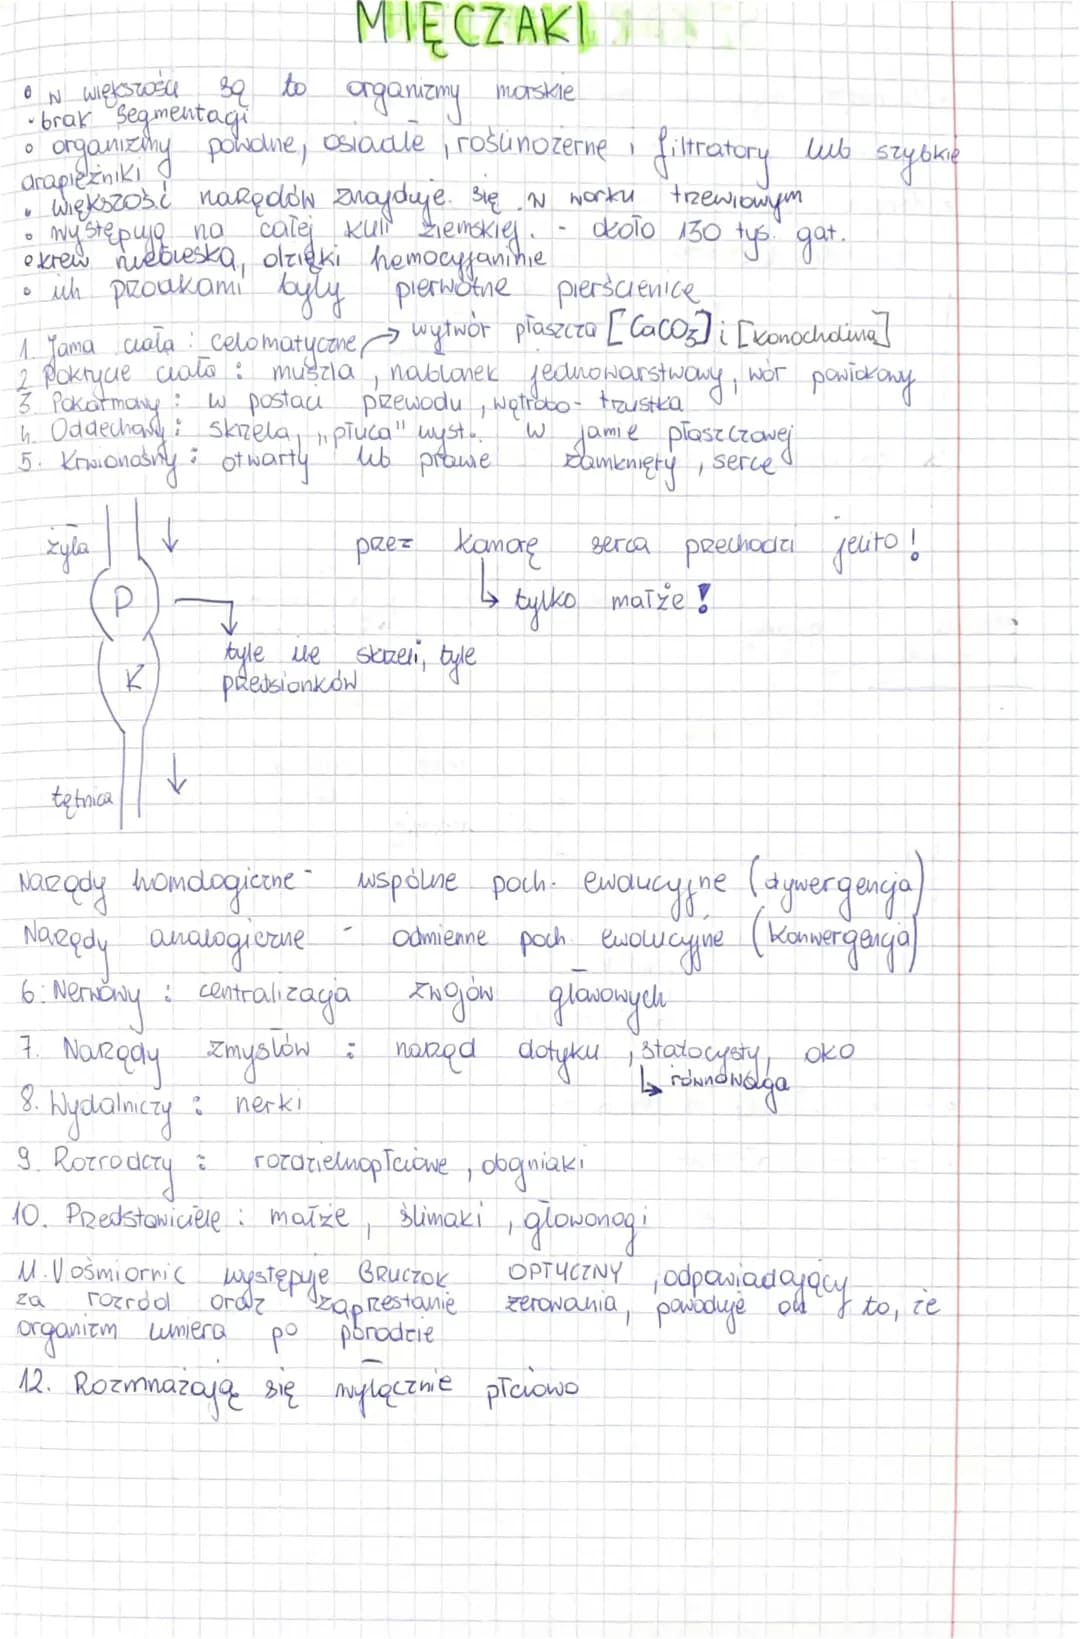 MIĘCZAKI
• W większości są to organizmy morskie
• brak segmentacji
• organizmy powolne, osiadłe, roślinożerne, filtratory lub szybkie
drapieżniki
• większość narządów znajduje się w worku trzewiowym
• występują na całej kuli ziemskiej - około 130 tys. gat.
• krew niebieska, dzięki hemocyjaninie
• ich przodkami były pierwotne pierścienice
1. Jama ciała: celomatyczne → wytwór płaszcza [CaCO3] i [konocholina]
2. Pokrycie ciała: muszla, nabłonek jednowarstwowy, wór powłokowy
3. Pokarmowy: w postaci przewodu, wątrobo-trzustka
4. Oddechowy: skrzela, "płuca" wyst. w jamie płaszczowej
5. Krwionośny: otwarty lub prawie zamknięty, serce
żyła ↓ przez komorę serca przechodzi jelito!
P ↳ tylko małże!
tyle ile skrzeli, tyle
K przedsionków
tętnica ↓
Narządy homologiczne - wspólne poch. ewolucyjne (dywergencja)
Narządy analogiczne - odmienne poch. ewolucyjne (konwergencja)
6. Nerwowy: centralizacja zwojów głowowych
7. Narządy zmysłów: narząd dotyku, statocysty, oko
↳ równowaga
8. Wydalniczy: nerki
9. Rozrodczy: rozdzielnopłciowe, obojniaki
10. Przedstawiciele: małże, ślimaki, głowonogi
11. U ośmiornic występuje GRUCZOŁ OPTYCZNY, odpowiadający
za rozród oraz zaprzestanie żerowania, powoduje on to, że
organizm umiera po porodzie
12. Rozmnażają się wyłącznie płciowo